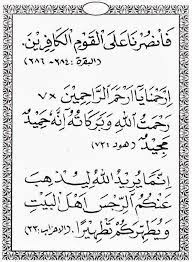 فَانْصُرْنَا عَلَى الْقَوْمِ الْكَافِرِيْنَ.
(البقرة: ٢٨٤-٢٨٦)
اِرْحَمْنَا يَا اَرْحَمَ الرَّاحِمِيْنَ ٧×
رَحْمَتُ اللهِ وَبَرَكَاتُهُ اِنَّهُ حَمِيْدٌ
مَجِيْدٌ (هود: ٧٣)
اِنَّمَا يُرِيْدُ اللهُ لِيُذْهِبَ
عَنْكُمُ الرِّجْسَ اَهْلَ الْبَيْتِ
وَيُطَهِّرَكُمْ تَطْهِيْرًا (الاحزاب: ٣٣)